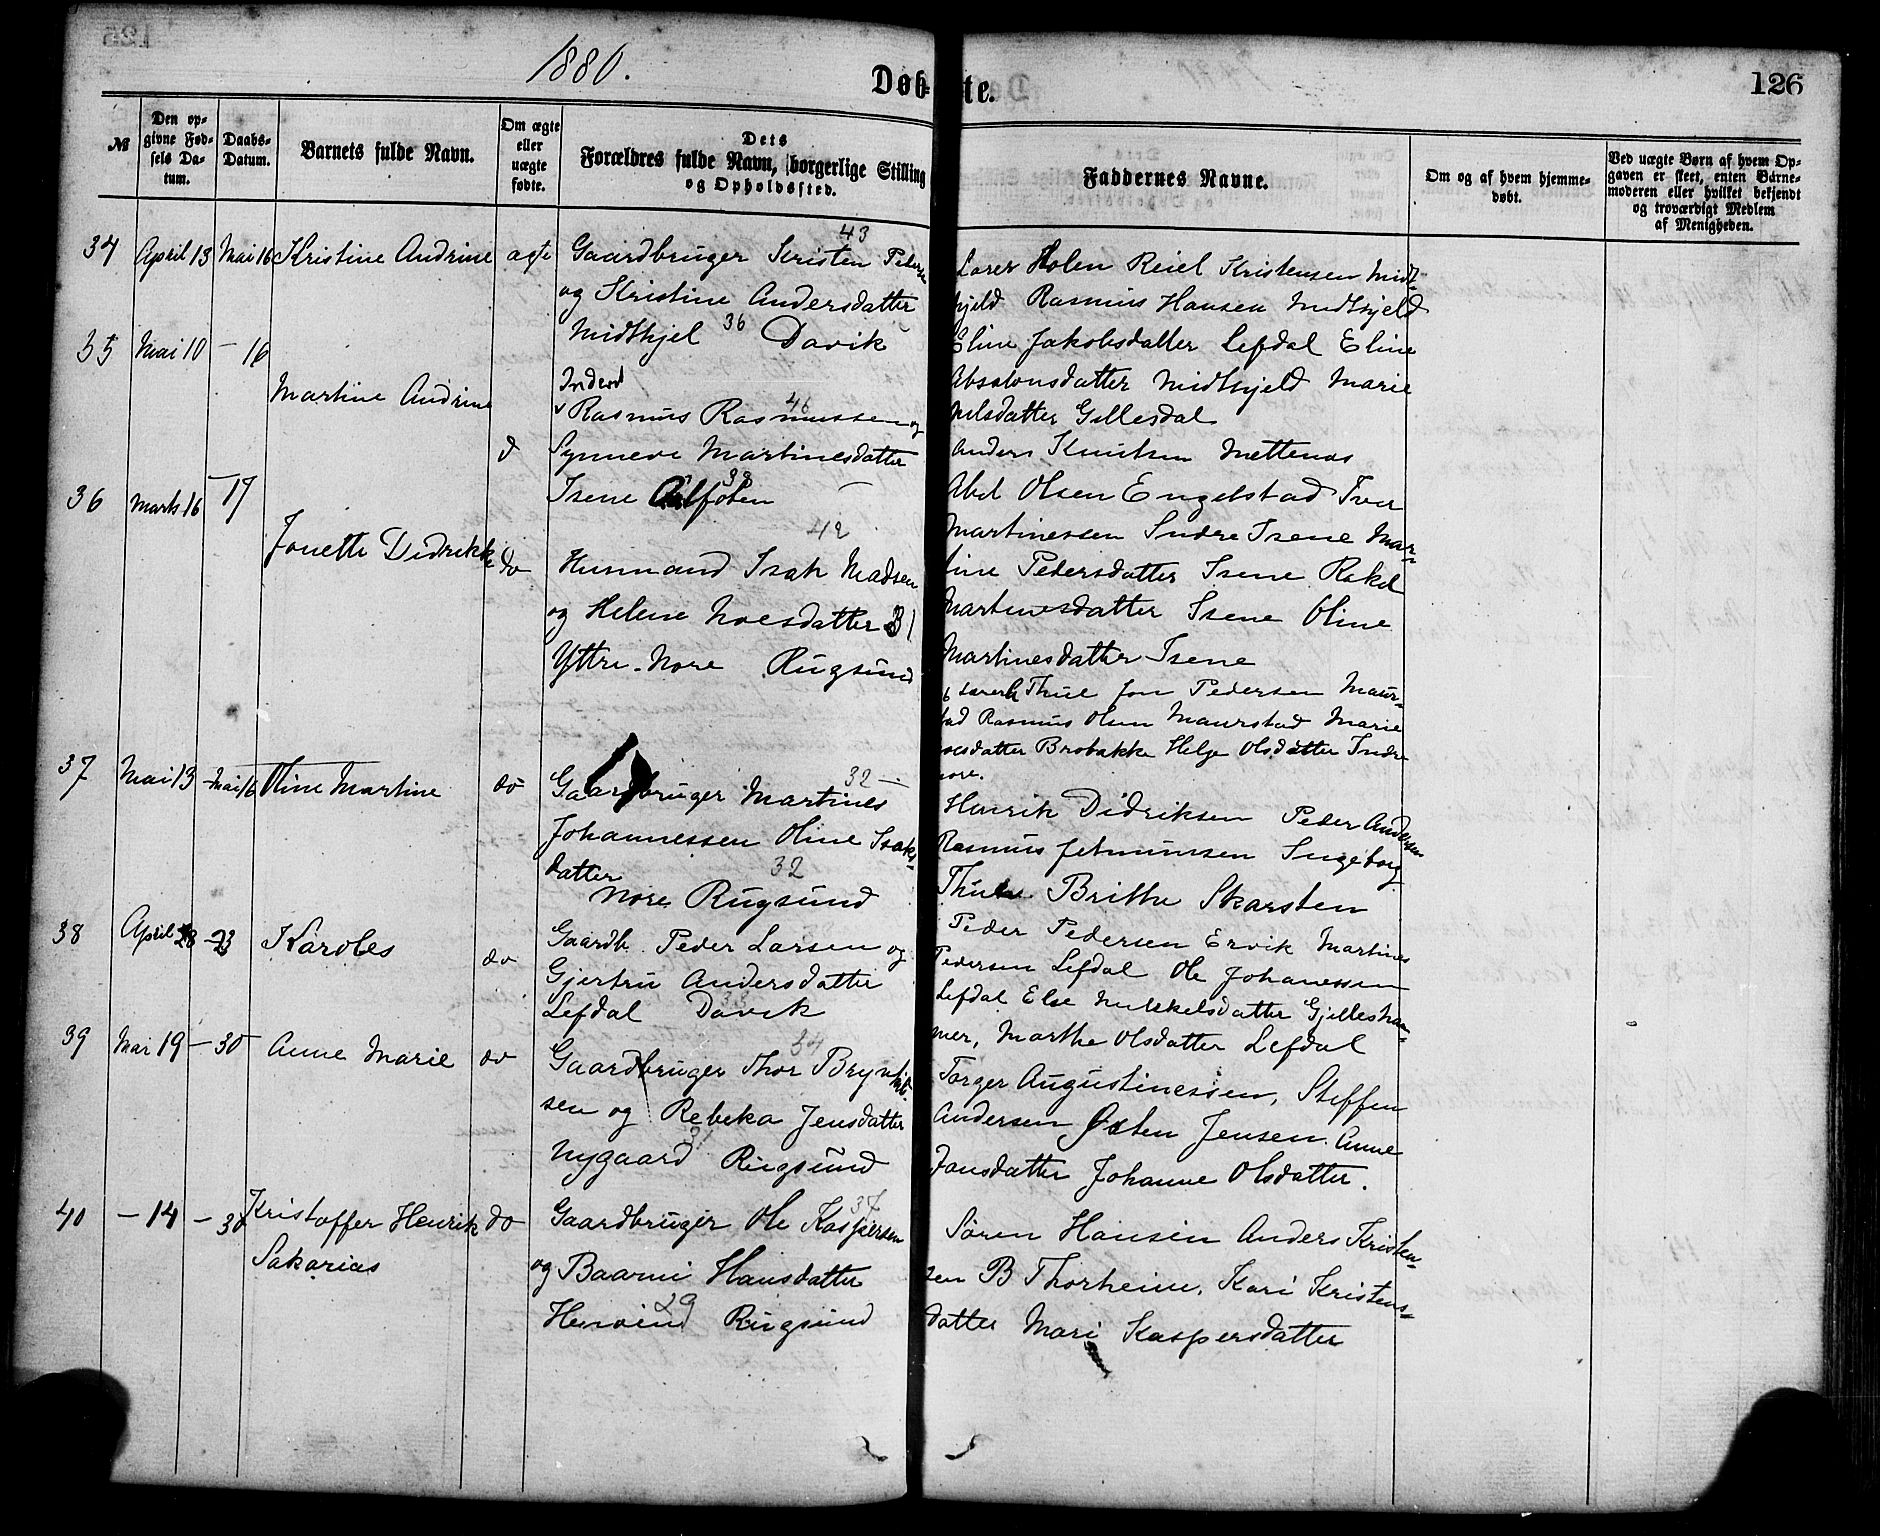 1880.
Døb-te.
126
№
Den op-
givne Fød-
sels Da-
tum.
Daabs-
Datum.
Barnets fulde Navn.
Om ægte
eller
uægte
fødte.
Dets
Forældres fulde Navn, borgerlige Stilling
og Opholdssted.
Faddernes Navne.
Om og af hvem hjemme-
døbt.
Ved uægte Børn af hvem Op-
gaven er skeet, enten Barne-
moderen eller hvilket bekjendt
og troværdigt Medlem
af Menigheden.
34 April 13 Mai 16 Kristine Andrine agte
43
Gaardbruger Kristen Peders
og Kristine Andersdatter
Midthjel 36 Davik
Larer Holen Reiel Kristensen Midt-
hjeld Rasmus Hansen Midthjeld
Eline Jakobsdatter Lefdal Eline
Absalonsdatter Midthjeld Marie
Nilsdatter Gillesdal
35 Mai 10 – 16 Martine Andrine d
Inderst
46
Rasmus Rasmussen og
Synneve Martinesdatter
39
Isene Aalfoten
Anders Knutsen Mettenes
Abel Olsen Engelstad Iver
Martinessen Indre Isene Mar-
tine Pedersdatter Isene Rakel
Martinesdatter Isene Oline
Martinesdatter Isene
36 Marts 16 – 17 Jonette Didrikke do
42
Husmand Isak Madsen
og Helene Noesdatter 31
Yttre-Nore Rugsund
Thue Jon Pedersen Maur-
stad Rasmus Olsen Maurstad Marie
oesdatter Brobakke Helge Olsdatter Indre
nore.
37 Mai 13 – Mai 16 Oline Martine do
32 –
Gaardbruger Martines
Johannessen Oline Isaks-
datter
32
Nore Rugsund
Henrik Didriksen Peder Andersen
Rasmus Jetmunsen Ingeborg
Thue Brithe Skarsten
38 April 28 – 23 Karoles do
Gaardb. Peder Larsen og
Gjertru Andersdatter
33
Lefdal Davik
Peder Pedersen Ervik Martines
Pedersen Lefdal Ole Johanessen
Lefdal Else Mikkelsdatter Gjellesham-
mer, Marthe Olsdatter Lefdal
39 Mai 19 – 30 Anne Marie do
34
Gaardbruger Thor Brynild-
sen og Rebeka Jensdatter
31
Nygaard Rugsund
Torger Augustinessen, Steffen
Andersen Østen Jensen. Anne
Jonsdatter Johanne Olsdatter.
40 – 14 – 30 Kristoffer Henrik do
Sakarias
37
Gaardbruger Ole Kaspersen
og Baarni Hansdatter
29
Henvind Rugsund
Søren Hansen Anders Kristen-
sen B Thorheim, Kari Kristens-
datter Mari Kaspersdatter